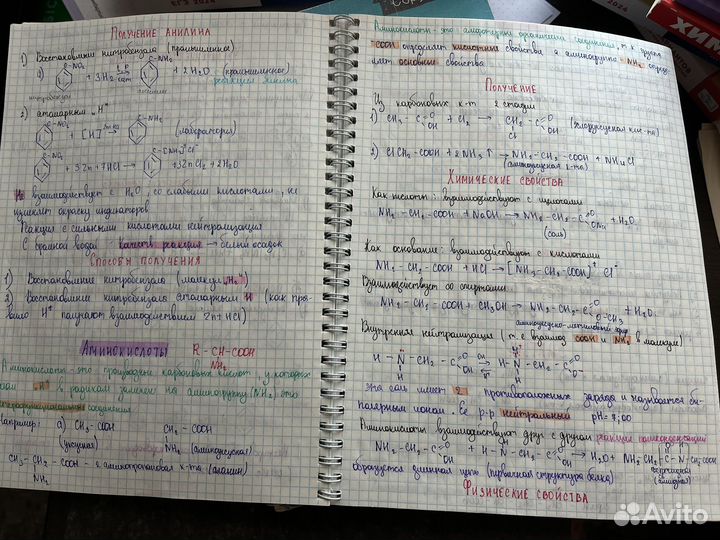 Получение анилина
1) Восстановление нитробензола (промышленное)
а) NO₂ + 3H₂ → NH₂ + 2H₂O (промышленное)
нитробензол анилин реакция Зинина
2) атомарным "H"
NO₂ + [H] → NH₂ (лаборатория)
NO₂ + 3Zn + 7HCl → + 3ZnCl₂ + 2H₂O
взаимодействует с H₂O, со слабыми кислотами, не
изменяет окраску индикаторов
Реакция с сильными кислотами нейтрализация
С бромной водой - качеств. реакция → белый осадок
Способы получения
1) Восстановление нитробензола (молекул. "H₂")
2) Восстановление нитробензола атомарным H (как пра-
вило H⁺ получают взаимодействием Zn + HCl)
Аминокислоты R - CH - COOH
NH₂
Аминокислоты - это производные карбоновых кислот, у которых
"H" в радикале замещён на аминогруппу (NH₂) это
соединения
например: а) CH₂ - COOH CH₂ - COOH
(глицин) NH₂ (аминоуксусная)
CH₃ - CH₂ - COOH - 2 аминопропановая к-та (аланин)
NH₂
Аминокислоты - это амфотерные органические соединения, т.к группа
-COOH определяет кислотные свойства а аминогруппа - NH₂ опреде-
ляет основные свойства
Получение
Из карбоновых к-т 2 стадии
1) CH₃ - C O OH + Cl₂ → CH₂ - C O OH (хлоруксусная кис-та)
Cl
2) ClCH₂ - COOH + 2NH₃ ↑ → NH₂ - CH₂ - COOH + NH₄Cl
(аминоуксусная к-та)
Химические свойства
Как кислоты: взаимодействуют с щелочами
NH₂ - CH₂ - COOH + NaOH → NH₂ - CH₂ - C O ONa + H₂O
(соль)
Как основание: взаимодействуют с кислотами
NH₂ - CH₂ - COOH + HCl → [NH₃ - CH₂ - COOH]⁺ Cl⁻
Взаимодействие со спиртами
NH₂ - CH₂ - COOH + CH₃OH → NH₂ - CH₂ - C O O - CH₃ + H₂O
Внутренняя нейтрализация (т.е взаимод COOH и NH₂ в молекуле)
H - N - CH₂ - C O OH ⇄ H - N - CH₂ - C O O
эта соль имеет 2 противоположных заряда и называется би-
полярным ионом. Её р-р нейтральный pH = 7,00
Аминокислоты взаимодействуют друг с другом реакция поликонденсации
NH₂ - CH₂ - C O OH + H - N - CH₂ - C O OH → H₂O + NH₂ - CH₂ - C - N - CH₂COOH
образуется длинная цепь (первичная структура белка)
Физические свойства
Avito